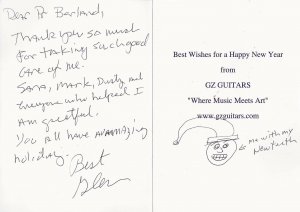 Dear Dr Borland,
Thank you so much
For taking such good
care of me.
Sara, Mark, Dusty and
Everyone who helped I
am grateful.
You all have an amazing
holiday.
Best
Glen
Best Wishes for a Happy New Year
from
GZ GUITARS
"Where Music Meets Art"
www.gzguitars.com
me with my
New teeth